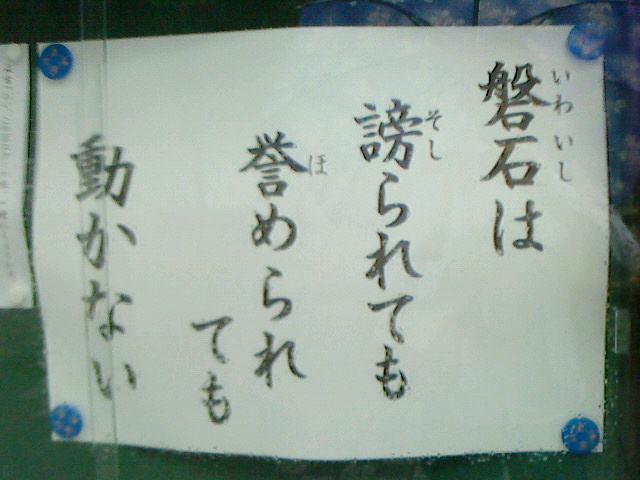 磐石は
いわ いし
謗られても
そし
誉められ
ほ
ても
動かない